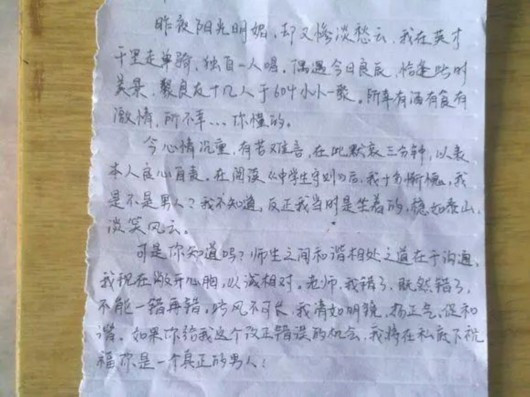 昨夜阳光明媚,却又惨淡愁云。我在英才
千里走单骑,独自一人喝。偶遇今日良辰,恰逢此时
美景,聚良友十几人于604小小一聚。所幸有酒有食有
激情,所不幸...你懂的。
今心情沉重,有苦难言,在此默哀三分钟,以表
本人良心自责。在阅读《中学生守则》后,我十分惭愧,我
是不是男人?我不知道,反正我当时是坐着的,稳如泰山,
谈笑风云。
可是你知道吗?师生之间和谐相处之道在于沟通,
我现在敞开心胸,以诚相对。老师,我错了,既然错了,
不能一错再错,此风不可长,我清如明镜,扬正气,促和
谐。如果你给我这个改正错误的机会,我将在私底下祝
福你是一个真正的男人!